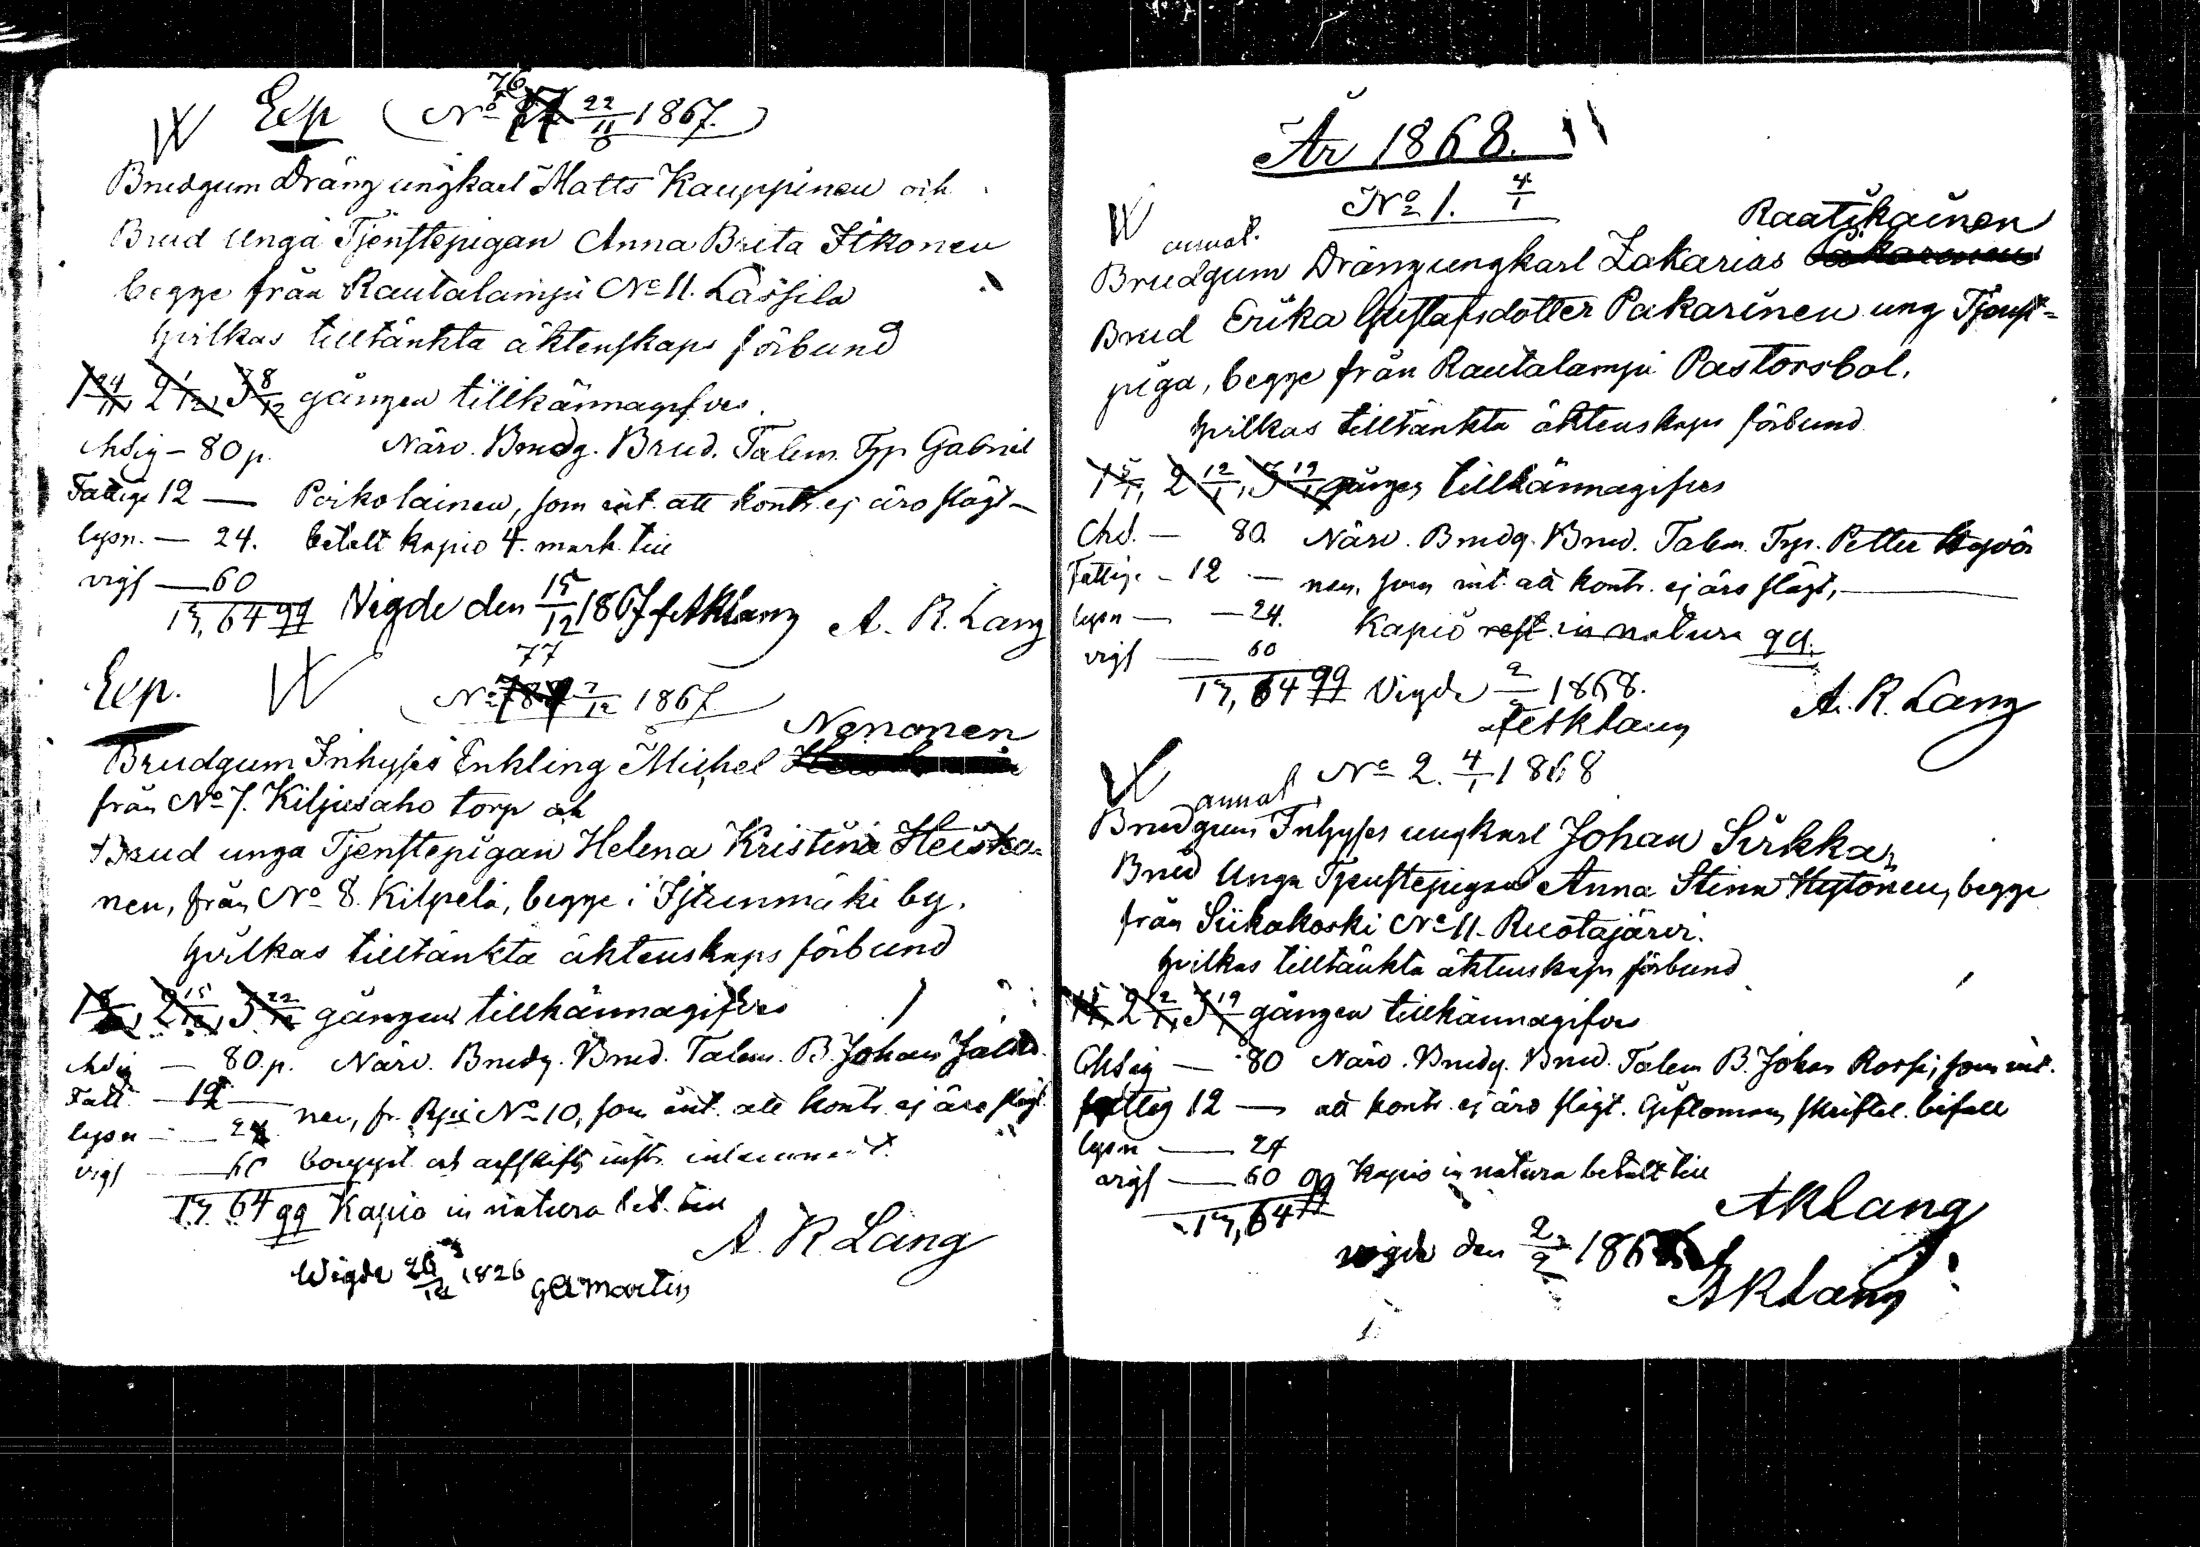 W Exp (No 76 22/11 1867.)
Brudgum Dräng ungkarl Matts Kauppinen och
Brud Unga Tjenstepigan Anna Brita Itkonen
begge från Rautalampi No 11. Lässilä
hvilkas tilltänkta äktenskaps förbund
1 24/11, 2 1/12, 3 8/12 gången tillkännagifves.
Ahdig – 80 p. Närv. Brudg. Brud. Talem. Trp Gabriel
Fattige 12 — Poikolainen, som int. att kontr. ej äro slägt –
lysn. — 24. betalt kapio 4. mark. till
vigs — 60
1 m, 64 qq Vigde den 15/12 1867 af ARLang A. R. Lang
Exp. W 77
No 7/12 1867.
Nenonen
Brudgum Inhyses Enkling Michel
från No 7. Kiljusaho torp och
Brud unga Tjenstepigan Helena Kristina Heiska-
nen, från No 8. Kilpelä, begge i Istunmäki by.
hvilkas tilltänkta äktenskaps förbund
1 8/12, 2 15/12, 3 22/12 gången tillkännagifves
Ahdig — 80. p. Närv. Brudg. Brud. Talem. B. Johan Jalka-
Fatt. — 12 — nen, fr. Rpi No 10, som int. att kontr. ej äro slägt.
lysn — 24
vigs — 60 bouppt. och arfskifts instr.
1 m. 64 qq Kapio in natura bet. till
A. R Lang
Wigde 26/12 1826 GAMartin
År 1868.
No 1. 4/1
W annot. Raatikainen
Brudgum Drängungkarl Zakarias
Brud Erika Gustafsdotter Pakarinen ung Tjenst-
piga, begge från Rautalampi Pastorsbol.
hvilkas tilltänkta äktenskaps förbund
1 5/1, 2 12/1, 3 19/1 gången tillkännagifves
Ahd. — 80. Närv. Brudg. Brud. Talem. Trp. Petter Hyvö
Fattige – 12 — nen, som int. att kontr. ej äro slägt, —
lysn — 24. Kapio rest. in natura qq.
vigs — 60
1 m, 64 qq Vigde 2/2 1868.
af ARLang A. R. Lang
W annot. No 2. 4/1 1868
Brudgum Inhyses ungkarl Johan Sirkka,
Brud Unga Tjenstepigan Anna Stina Hytönen, begge
från Siikakoski No 11. Ruotajärvi.
hvilkas tilltänkta äktenskaps förbund
1 5/1, 2 12/1, 3 19/1 gången tillkännagifves
Ahdig — 80 Närv. Brudg. Brud. Talem B. Johan Rossi, som int.
fattig 12 — att kontr. ej äro slägt. Giftoman, skriftel. bifall
lysn — 24
vigs — 60 qq Kapio in natura betalt till
1 m, 64 ARLang
vigde den 2/2 186
ARLang